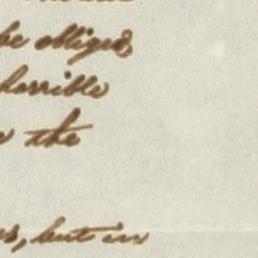 be obliged,
horrible
the
but in